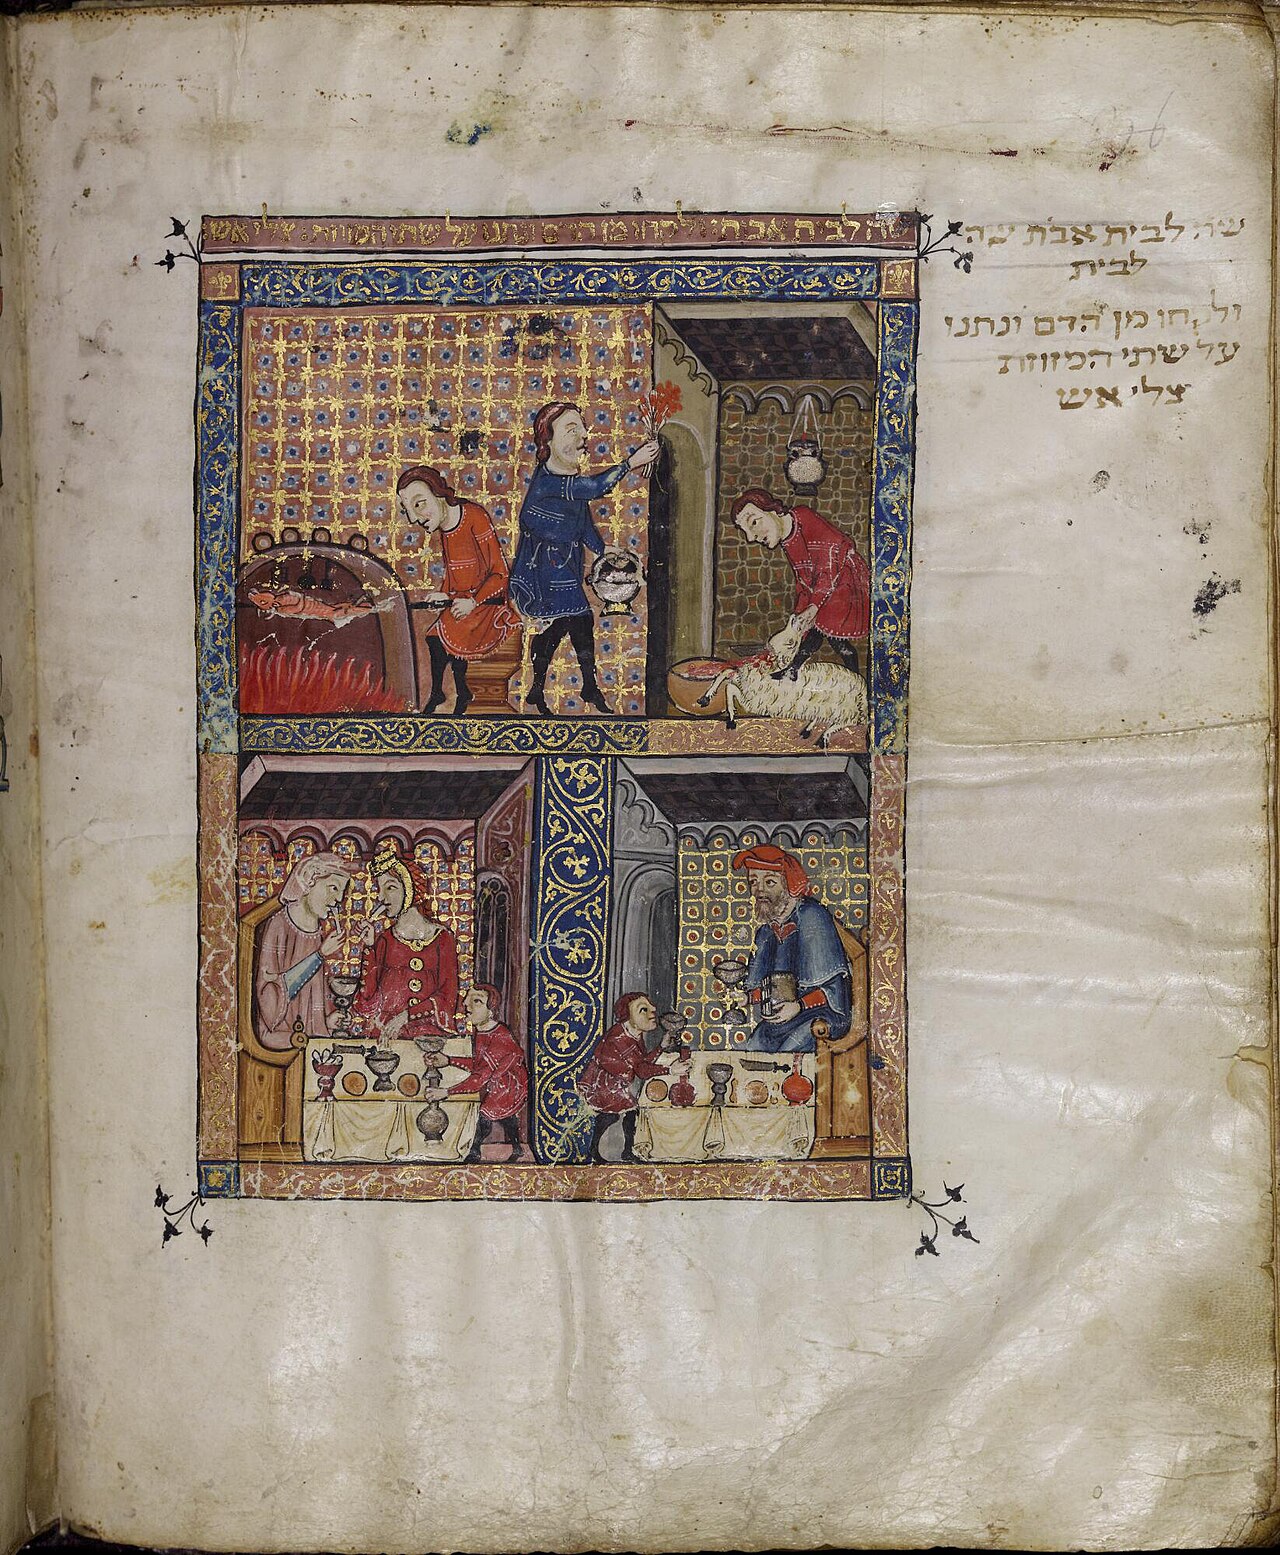 שה לבית אבת ולקחו מן הדם ונתנו על שתי המזוזות צלי אש
שה לבית אבת שה
לבית
ולקחו מן הדם ונתנו
על שתי המזוזות
צלי אש